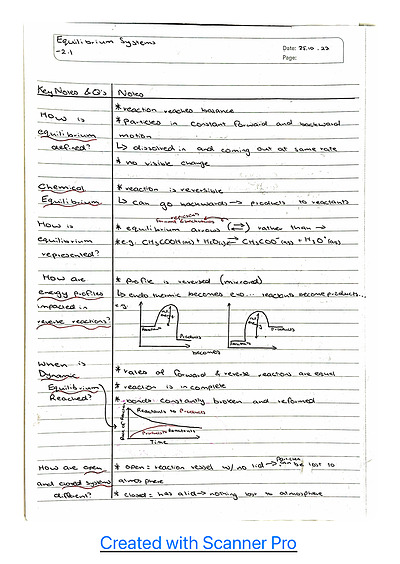 Equilibrium Systems
-2.1
Date: 25.10.23
Page:
Key Notes & Q's
Notes
* reaction reaches balance
How is equilibrium defined?
* particles in constant forward and backward motion
↳ dissolved in and coming out at same rate
* no visible change
Chemical Equilibrium
* reaction is reversible
↳ can go backwards → products to reactants
How is equilibrium represented?
represent forward & backwards
* equilibrium arrows (⇌) rather than →
* e.g. CH₃COOH(aq) + H₂O(l) ⇌ CH₃COO⁻(aq) + H₃O⁺(aq)
How are energy profiles impacted in reverse reactions?
* profile is reversed (mirrored)
↳ endothermic becomes exo... reactants become products...
e.g.
Reactants
Products
becomes
Reactants
Products
When is Dynamic Equilibrium Reached?
* rates of forward & reverse reactions are equal
* reaction is incomplete
* bonds constantly broken and reformed
Rate of Reaction
Reactants to Products
Products to Reactants
Time
How are open and closed systems different?
* open = reaction vessel w/ no lid → particles can be lost to atmosphere
* closed = has a lid → nothing lost to atmosphere
Created with Scanner Pro